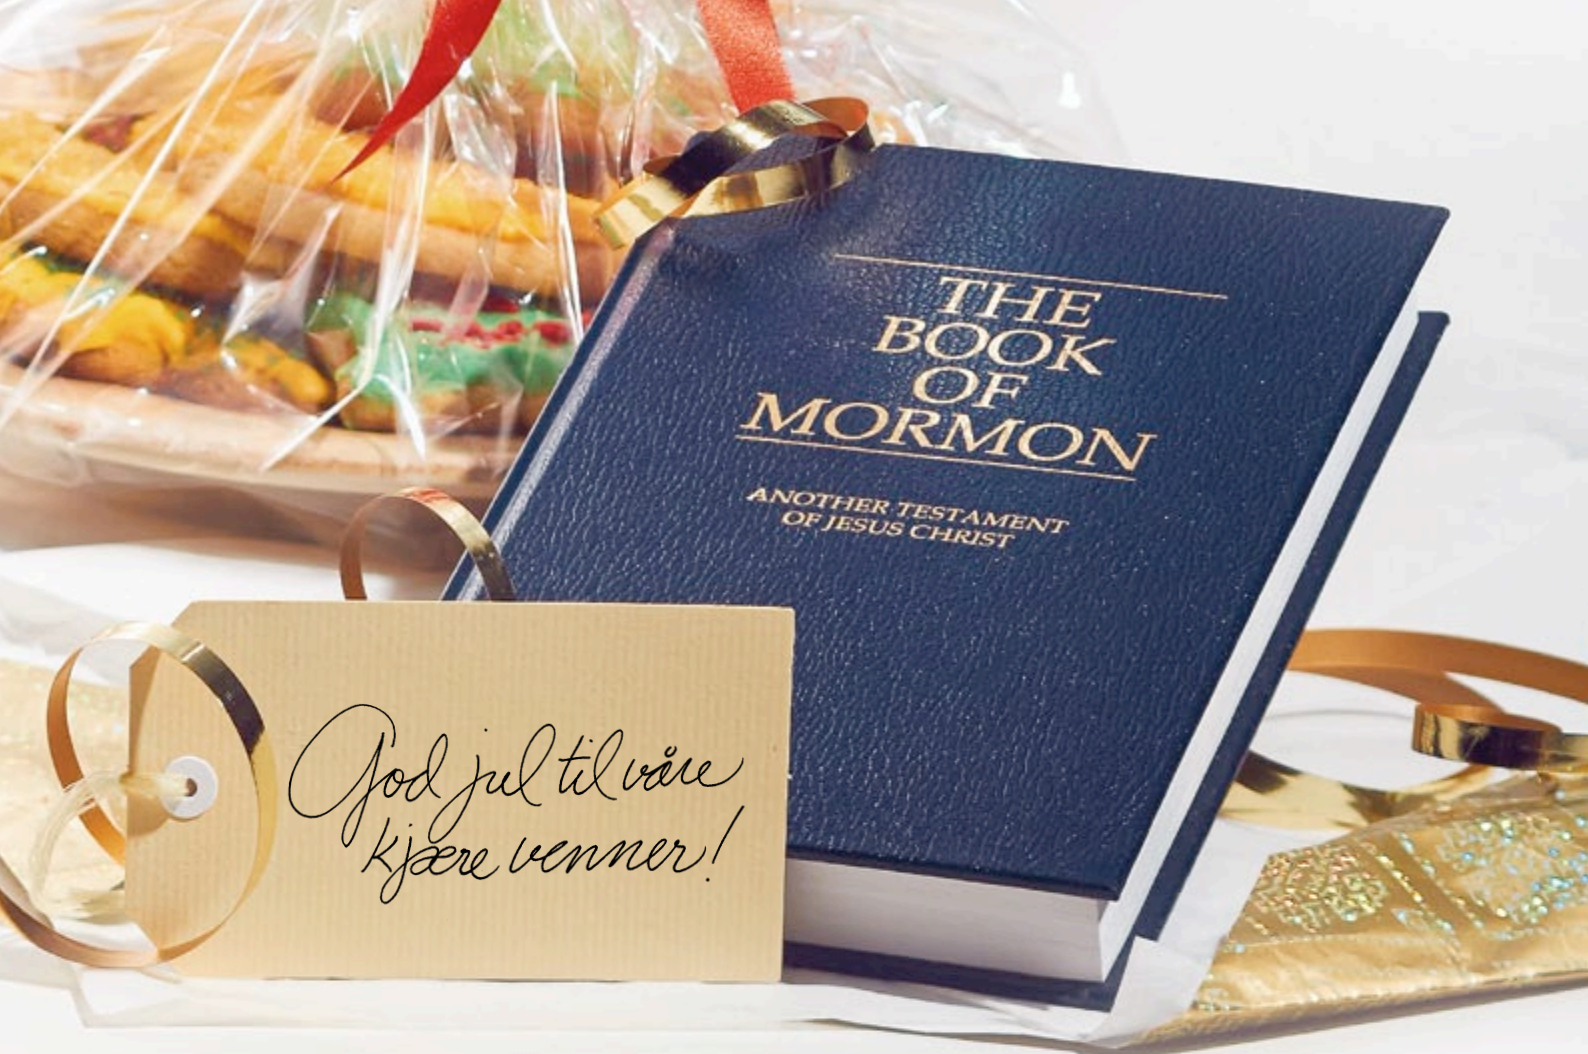 THE
BOOK
OF
MORMON
ANOTHER TESTAMENT
OF JESUS CHRIST
God jul til våre
kjære venner!